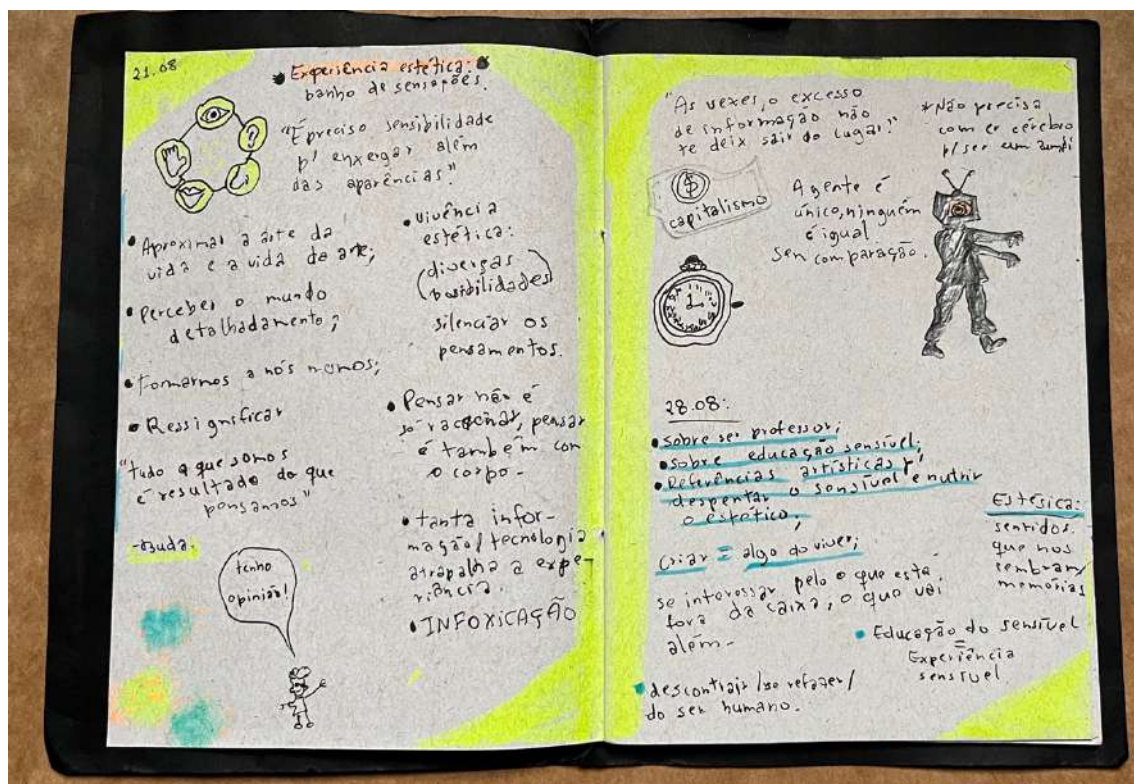 21.08
• Experiência estética: •
banho de sensações.
"É preciso sensibilidade
p/ enxergar além
das aparências."
• Aproximar a arte da
vida e a vida da arte;
• Perceber o mundo
detalhadamente;
• Formarmos a nós mesmos;
• Ressignificar
"tudo o que somos
é resultado do que
pensamos"
-Buda.
tenho
opinião!
• vivência
estética:
(diversas
possibilidades)
silenciar os
pensamentos.
• Pensar não é
só raciocinar, pensar
é também com
o corpo-
• tanta infor-
mação/tecnologia
atrapalha a expe-
riência.
• INFOXICAÇÃO
"As vezes, o excesso
de informação não
te deix sair do lugar."
*Não precisa
comer cérebro
p/ser um zumbi
$
capitalismo
A gente é
único, ninguém
é igual
sen comparação.
28.08:
• sobre ser professor;
• sobre educação sensível;
• Referências artísticas p/
despentar o sensível e nutrir
o estético;
Criar = algo do viver;
se interessar pelo o que está
fora da caixa, o que vai
além-
Estésica:
sentidos
que nos
lembram/
memórias
• Educação do sensível
=
Experiência
sensível
• /se refazer/
do ser humano.